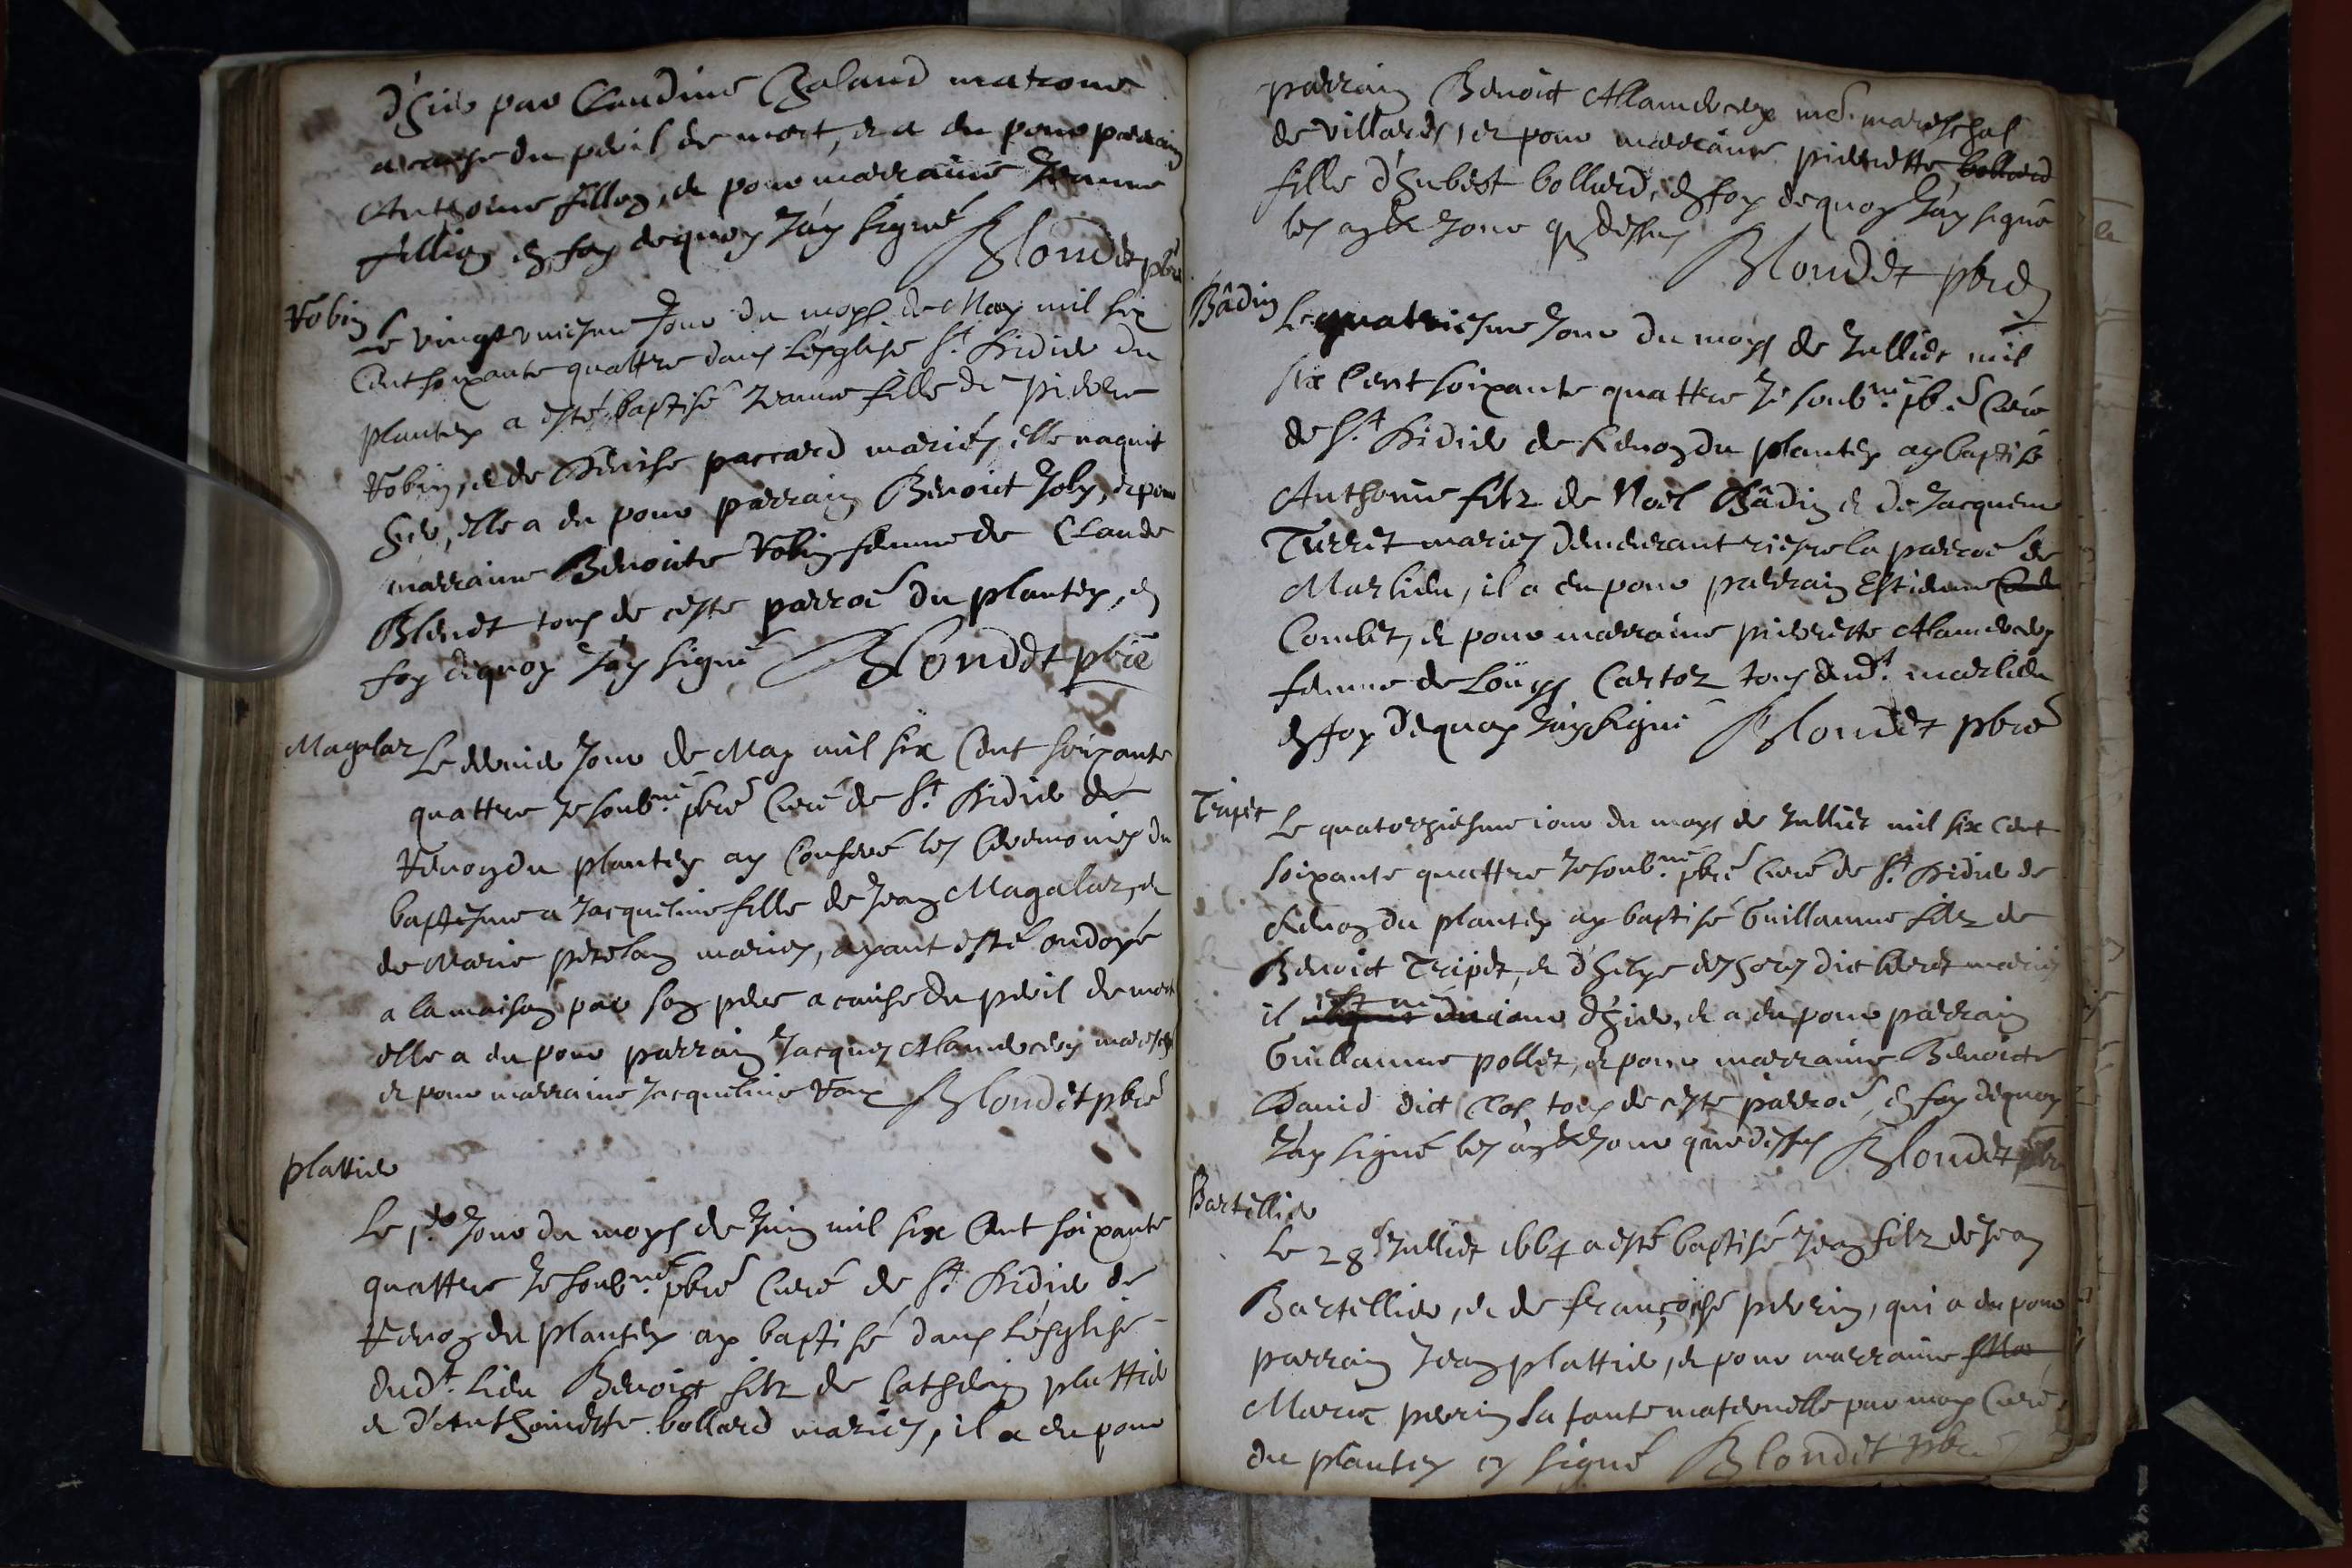 d'hier par Claudine Chaland matrone
a cause du peril de mort, et a eu pour parrain
Anthoine fillon, et pour marraine Jeanne
fillion en foy dequoy J'ay signé Blondet pbre
Robin
Le vingt uniesme Jour du moys de May mil six
Cent soixante quattre dans L'esglise St. Didier du
plantey a esté baptisé Jeanne fille de pierre
Robin, et de Denise paccard mariés, elle naquit
hier, elle a eu pour parrain Benoict Joly, et pour
marraine Benoite Robin femme de CLaude
Blenet tous de ceste parroe du plantey, en
foy dequoy J'ay signé Blondet pbre
Magalar
Le dernier Jour de May mil six Cent soixante
quattre Je soubne. pbre Curé de St. Didier de
Renon du plantey ay Conferé les Ceremonies du
baptesme a Jacqueline fille de Jean Magalar, et
de Marie perelan mariés, ayant esté ondoyé
a la maison par son pere a cause du peril de mort
elle a eu pour parrain Jacques Alamercery mareschal
et pour marraine Jacqueline Blondet pbre
plattier
Le 1.er Jour du moys de Juin mil six Cent soixante
quattre Je soubne. pbre Curé de St. Didier de
Renon du plantey ay baptisé dans L'esglise
dudt. Lieu Benoict filz de Catherin plattier
et d'Anthoinette bollard mariés, il a eu pour
parrain Benoict Alamercery md. mareschal
de villards, et pour marraine pierrette bollard
fille d'hubert bollard, en foy dequoy J'ay signé
les an et Jour q dessus
Blondet pbre
Bâdin
Le quatriesme Jour du moys de Julliet mil
six Cent soixante quattre Je soubne. pbre Curé
de St. Didier de Renon du plantey ay baptisé
Anthoine filz de Noel Bâdin et de Jacqueme
Turret mariés demeurant riesre la parroe de
Marlieu, il a eu pour parrain Estienne
Combet, et pour marraine pierrette Alamercery
femme de Loüys Cartoz tous dudt. marlieu
en foy dequoy J'ay signé Blondet pbre
Tripet
Le quatorziesme iour du moys de Julliet mil six Cent
soixante quattre Je soubne. pbre Curé de St. Didier de
Renon du plantey ay baptisé Guillaume filz de
Benoict Tripet, et d'helye dict mariés
il est né du iour d'hier, et a eu pour parrain
Guillaume pollet, et pour marraine Benoicte
David dict Clos tous de ceste parroe, en foy dequoy
J'ay signé les an et Jour que dessus Blondet pbre
Bartellier
Le 28e Julliet 1664 a esté baptisé Jean filz de Jean
Bartellier, et de françoise perrin, qui a eu pour
parrain Jean plattier, et pour marraine
Marie perrin sa tante maternelle par moy Curé
du plantey signé Blondet pbre